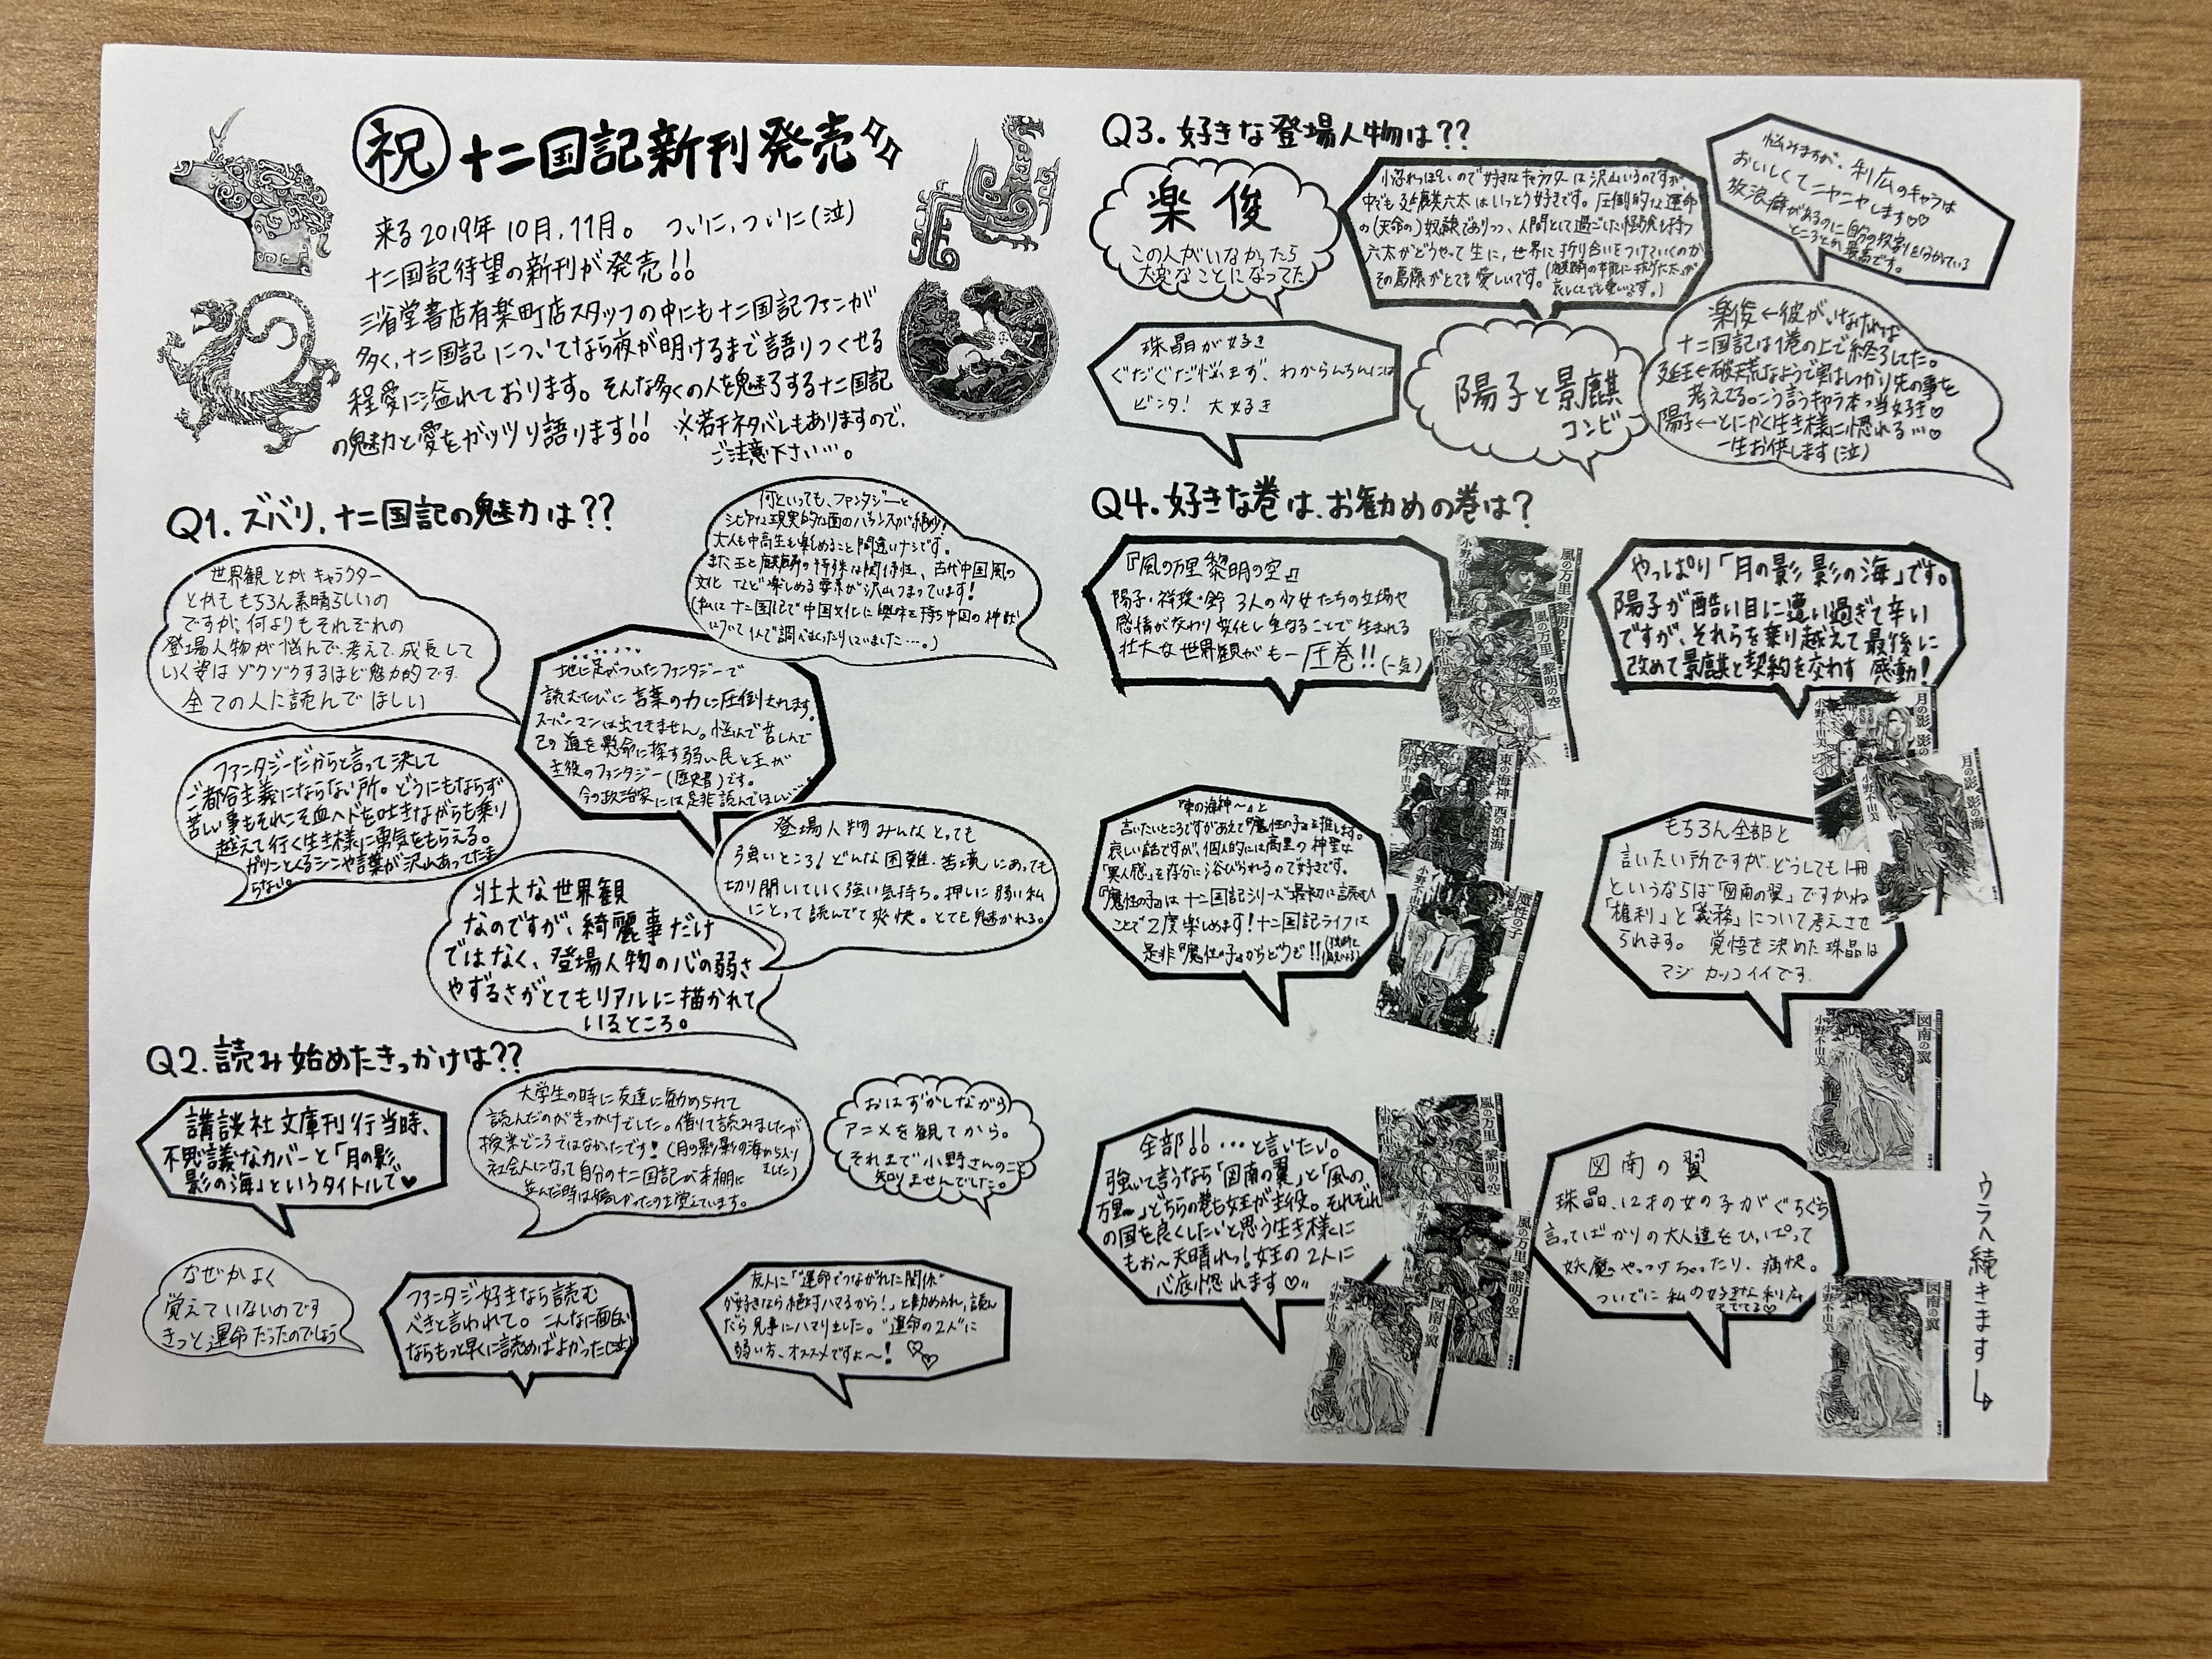 祝 十二国記新刊発売
来る2019年10月,11月。 ついに,ついに(泣)
十二国記待望の新刊が発売!!
三省堂書店有楽町店スタッフの中にも十二国記ファンが
多く,十二国記についてなら夜が明けるまで語りつくせる
程愛に溢れております。そんな多くの人を魅了する十二国記
の魅力と愛をガッツリ語ります!! ※若干ネタバレもありますので,
ご注意下さい…。
Q1.ズバリ,十二国記の魅力は??
世界観とかキャラクター
とかももちろん素晴らしいの
ですが、何よりもそれぞれの
登場人物が悩んで、考えて、成長して
いく姿はゾクゾクするほど魅力的です.
全ての人に読んでほしい
何といっても、ファンタジーと
シビアな現実的な面のバランスが絶妙!
大人も中高生も楽しめること間違いナシです。
また王と麒麟の特殊な関係性、古代中国風の
文化 など楽しめる要素が沢山つまっています!
(私は十二国記で中国文化に興味を持ち中国の神獣
について1人で調べまくったりしていました…。)
地に足がついたファンタジーで
読むたびに言葉の力に圧倒されます。
スーパーマンは出てきません。悩んで苦しんで
己の道を懸命に探す弱い民と王が
主役のファンタジー(歴史書)です。
今の政治家には是非読んでほしい…
ファンタジーだからと言って決して
ご都合主義にならない所。どうにもならず
苦しい事もそれこそ血ヘドを吐きながらも乗り
越えて行く生き様に勇気をもらえる。
ガツンとくるシーンや言葉が沢山あってたま
らない。
登場人物みんなとっても
強いところ!どんな困難、苦境にあっても
切り開いていく強い気持ち。押しに弱い私
にとって読んでて爽快。とても魅かれる。
壮大な世界観
なのですが、綺麗事だけ
ではなく、登場人物の心の弱さ
やずるさがとてもリアルに描かれて
いるところ。
Q2.読み始めたきっかけは??
講談社文庫刊行当時、
不思議なカバーと「月の影
影の海」というタイトルで♥
大学生の時に友達に勧められて
読んだのがきっかけでした。借りて読みましたが
授業どころではなかったです!(月の影影の海から入り
ました)
社会人になって自分の十二国記が本棚に
並んだ時は嬉しかったのを覚えています。
おはずかしながら
アニメを観てから。
それまで小野さんのこと
知りませんでした。
なぜかよく
覚えていないのです
きっと運命だったのでしょう
ファンタジー好きなら読む
べきと言われて。こんなに面白い
ならもっと早くに読めばよかった(泣)
友人に「"運命でつながれた関係"
が好きなら絶対ハマるから!」と勧められ,読ん
だら見事にハマりました。"運命の2人"に
弱い方、オススメですよ〜!
Q3.好きな登場人物は??
楽俊
この人がいなかったら
大変なことになってた
小忽れっぽいので好きなキャラクターは沢山いるのですが、
中でも延麒六太はいっとう好きです。圧倒的な運命
の(天命の)奴隷でありつつ、人間として過ごした経験も持つ
六太がどうやって生に,世界に折り合いをつけていくのか
その葛藤がとても愛しいです。
悩みますが、利広のキャラは
おいしくてニヤニヤします♡♡
放浪癖があるのに自分の役割を分かっている
ところとか最高です。
珠晶が好き
ぐだぐだ悩まず、わからんちんには
ビンタ! 大好き
陽子と景麒
コンビ
楽俊←彼がいなければ
十二国記は1巻の上で終了してた。
延王←破天荒なようで実はしっかり先の事を
考えてる。こう言うキャラ本っ当好き♡
陽子←とにかく生き様に惚れる…♡
一生お供します(泣)
Q4.好きな巻は、お勧めの巻は?
『風の万里 黎明の空』
陽子・祥瓊・鈴 3人の少女たちの立場や
感情が交わり変化し重なることで生まれる
壮大な世界観がもー圧巻!!(一気)
やっぱり「月の影 影の海」です。
陽子が酷い目に遭い過ぎて辛い
ですが、それらを乗り越えて最後に
改めて景麒と契約を交わす 感動!
『東の海神〜』と
言いたいところですがあえて『魔性の子』を推します。
哀しい話ですが、個人的には高里の神聖な
「異人感」を存分に浴びられるので好きです。
『魔性の子』は十二国記シリーズ最初に読む
ことで2度楽しめます!十二国記ライフは
是非『魔性の子』からどうぞ!!
もちろん全部と
言いたい所ですが、どうしても1冊
というならば「図南の翼」ですかね
「権利」と「義務」について考えさせ
られます。 覚悟を決めた珠晶は
マジ カッコイイです.
全部!!…と言いたい。
強いて言うなら「図南の翼」と「風の
万里〜」どちらの巻も女王が主役。それぞれ
の国を良くしたいと思う生き様に
もお〜天晴れっ!女王の2人に
心底惚れます♡
図南の翼
珠晶、12才の女の子がぐちぐち
言ってばかりの大人達をひっぱって
妖魔やっつけちゃったり、痛快。
ついでに私の好きな利広
もでてる♡
風の万里 黎明の空
小野不由美
風の万里 黎明の空
小野不由美
月の影 影の海
小野不由美
月の影 影の海
小野不由美
東の海神 西の滄海
小野不由美
魔性の子
小野不由美
図南の翼
小野不由美
風の万里 黎明の空
小野不由美
風の万里 黎明の空
小野不由美
図南の翼
小野不由美
図南の翼
小野不由美
ウラへ続きます